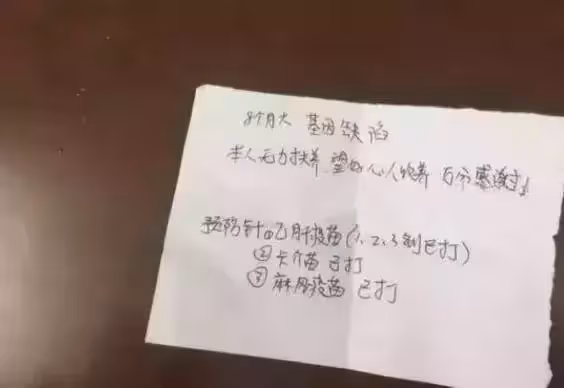 8个月大 基因缺陷
本人无力扶养,望好心人收养 万分感谢!
预防针①乙肝疫苗(1、2、3剂已打)
②卡介苗 已打
③麻风疫苗 已打